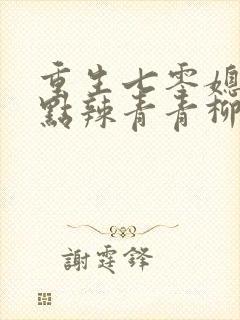 重生七零媳
點辣青青柳
謝霆鋒